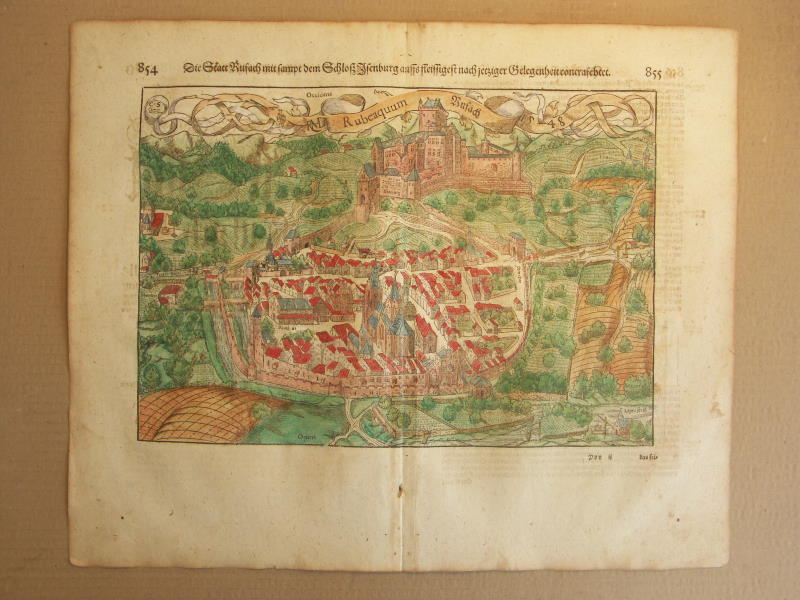 854
Die Statt Rufach mit sampt dem Schloß Jsenburg auffs fleissigest nach jetziger Gelegenheit contrafehtet.
855
Occidens
Rubeaquum
Rufach
1548
Oriens